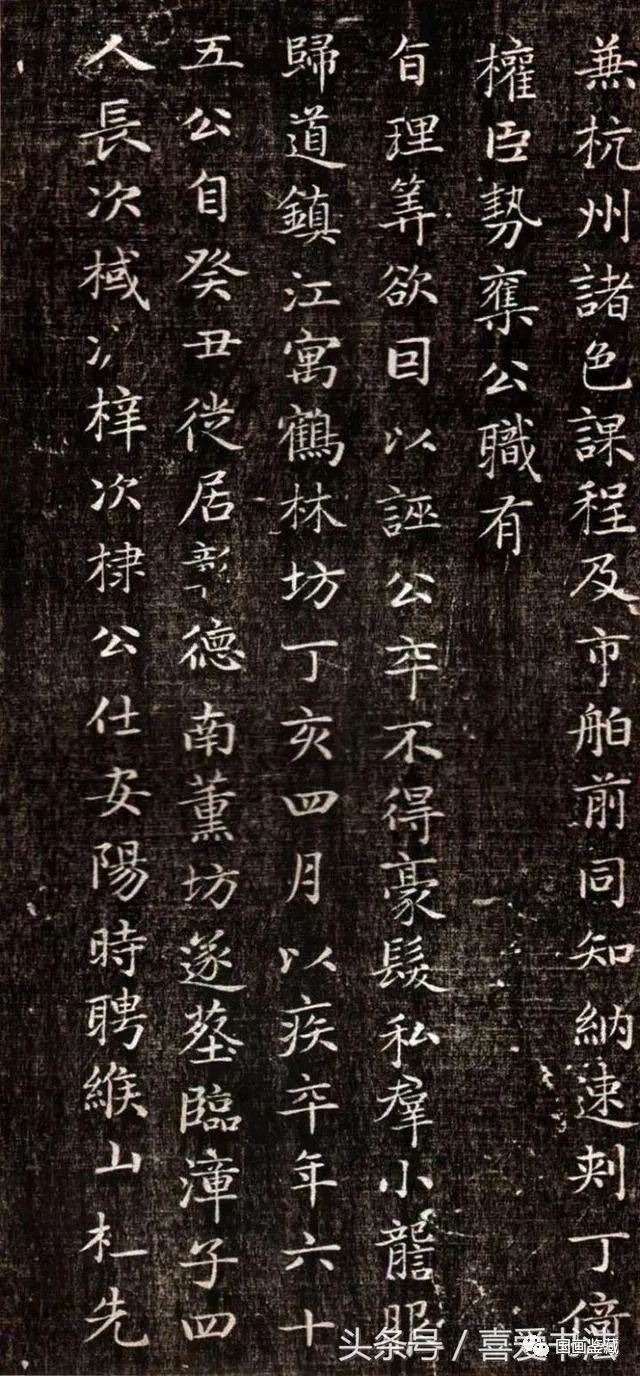 兼杭州諸色課程及市舶前同知納速剌丁倚
權臣勢奪公職有
旨理筭欲囙以誣公卒不得豪髮私羣小讋服
歸道鎮江寓鶴林坊丁亥四月以疾卒年六十
五公自癸丑徙居彰德南薰坊遂塟臨漳子四
人長次棫次梓次棣公仕安陽時聘緱山杜先
头条号 / 喜爱书法
国画鉴藏